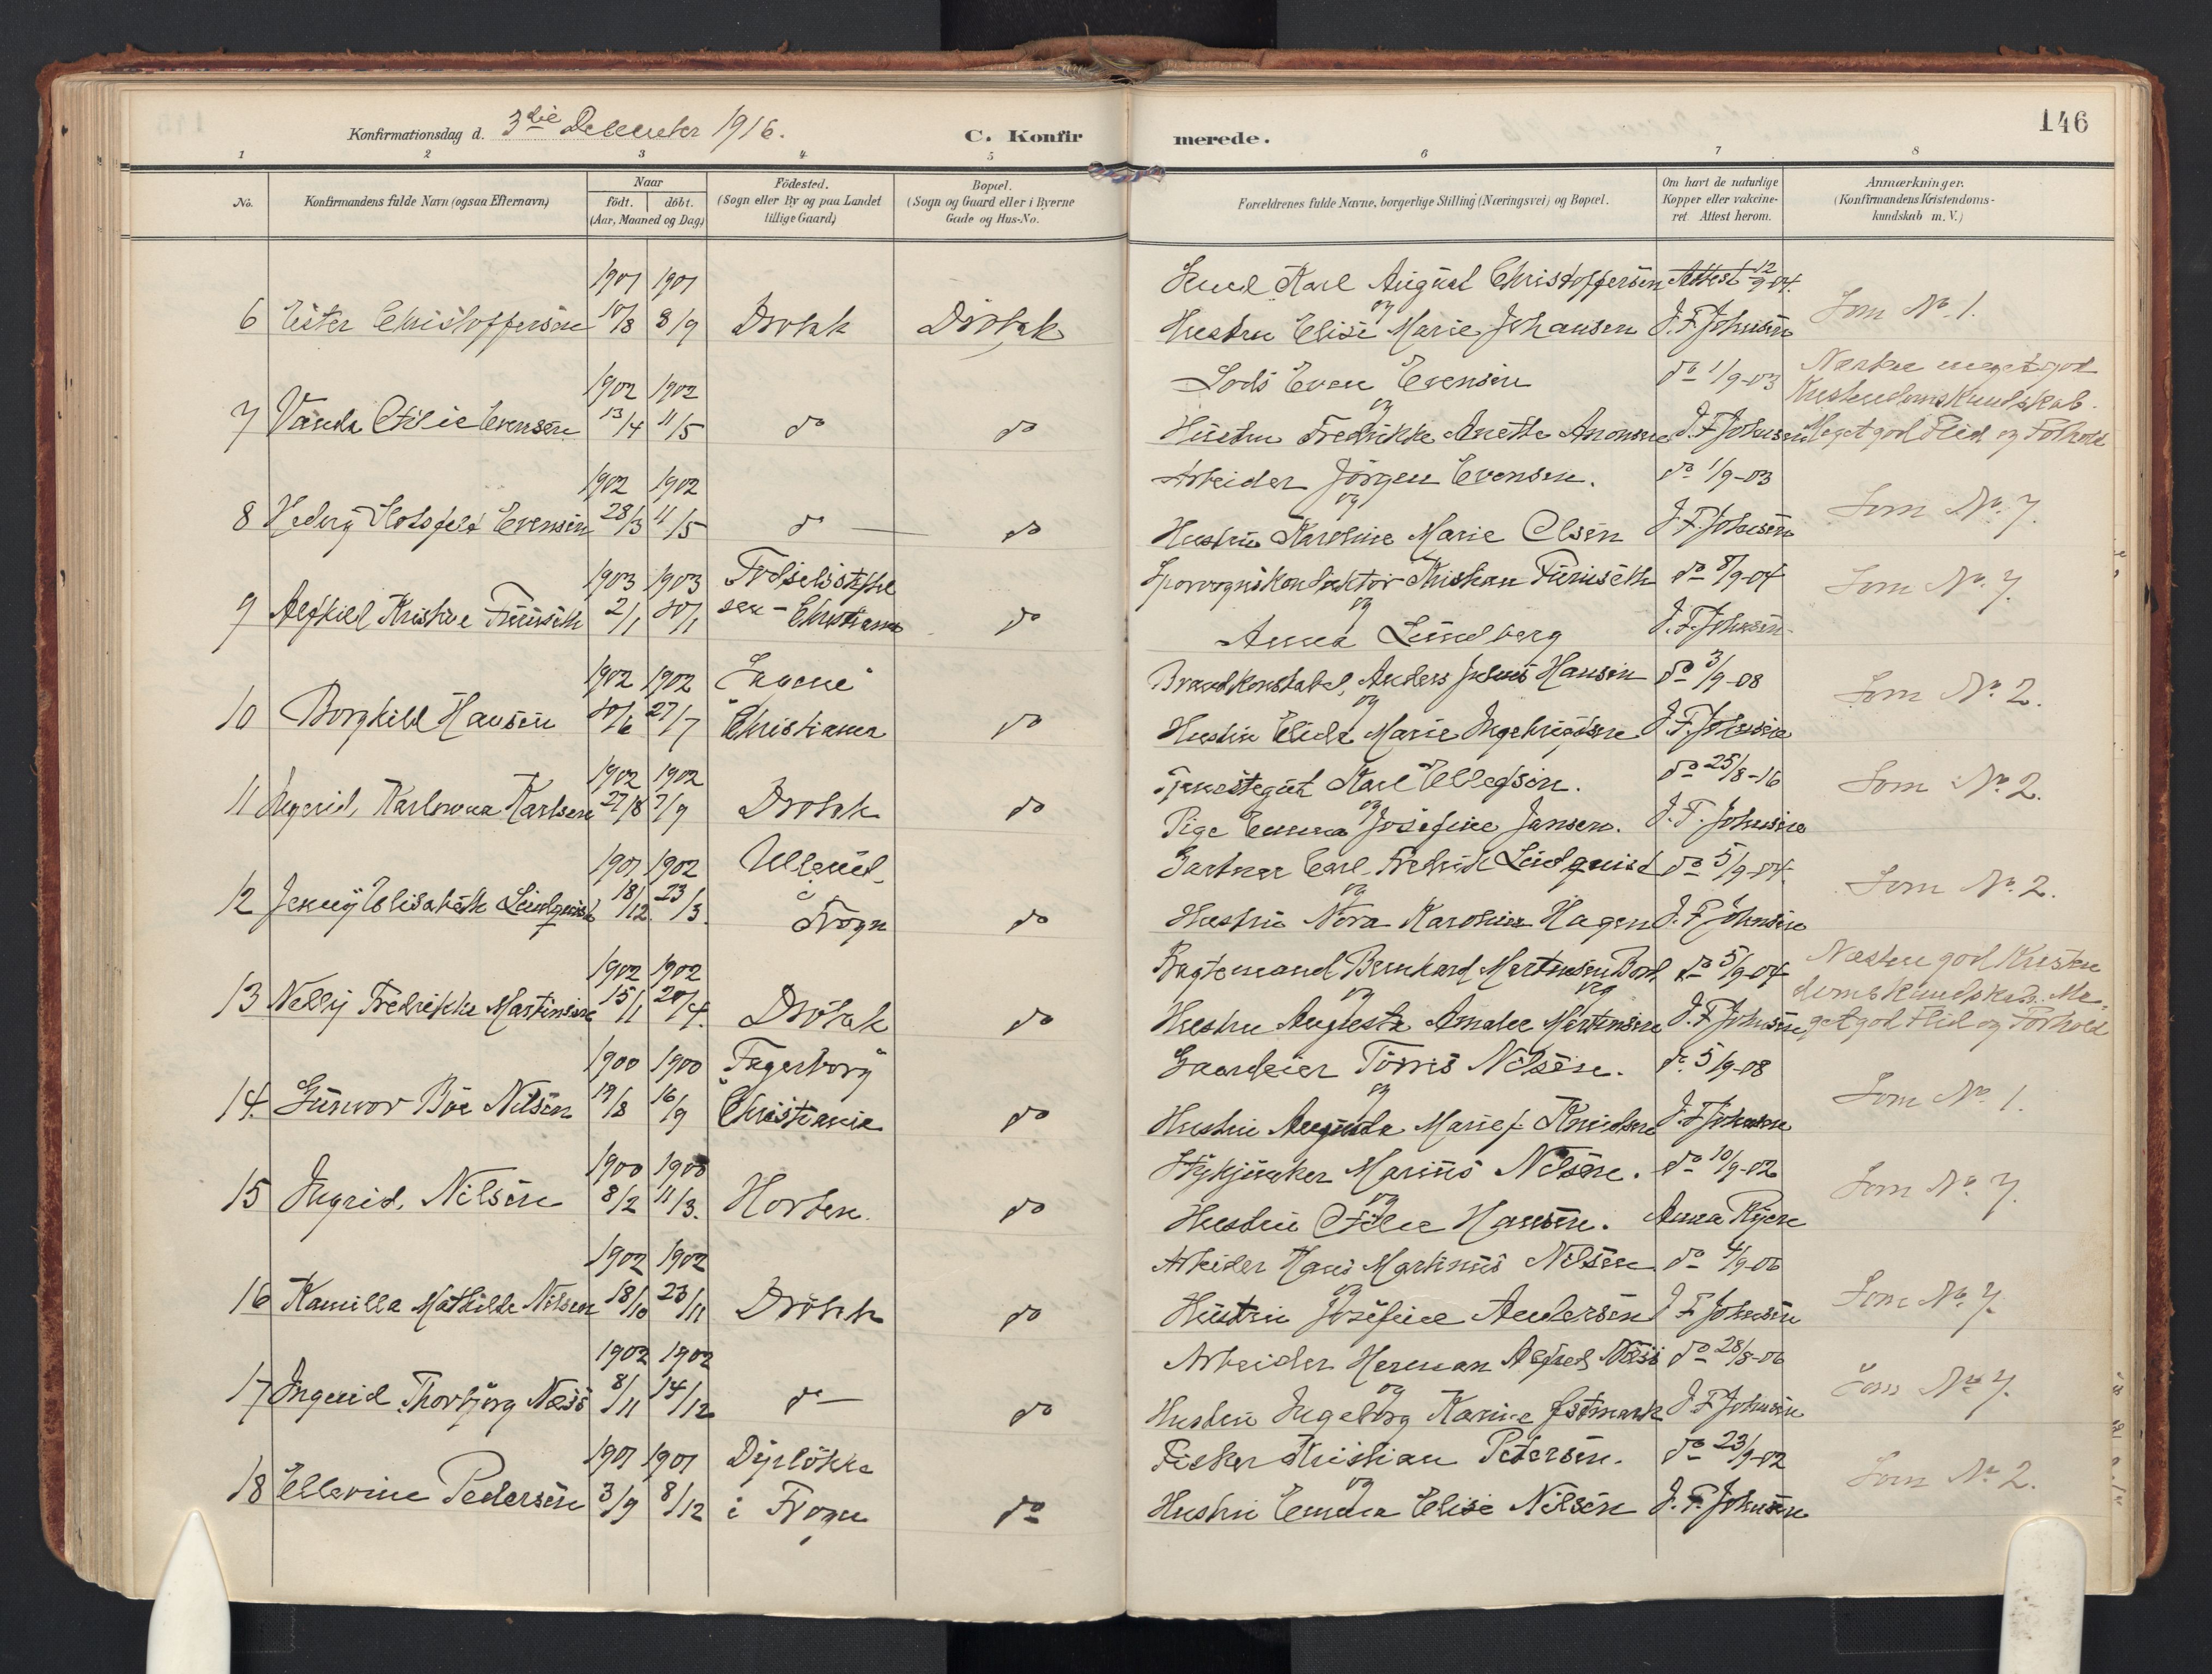 146
Konfirmationsdag d. 3die December 1916. C. Konfir merede.
1 2 3 4 5 6 7 8
No. Konfirmandens fulde Navn (ogsaa Efternavn) Naar födt. döbt. (Aar, Maaned og Dag) Födested. (Sogn eller By og paa Landet tillige Gaard) Bopæl. (Sogn og Gaard eller i Byerne Gade og Hus-No. Forældrenes fulde Navne, borgerlige Stilling (Næringsvei) og Bopæl. Om havt de naturlige Kopper eller vakcineret. Attest herom. Anmærkninger. (Konfirmandens Kristendomskundskab m. V.)
1901 1901 Karl August Christoffersen Attest 12/9-04.
6 Ester Christoffersen 10/8 8/9 Drøbak Drøbak og Hustru Elise Marie Johansen J. F. Johnsen Som No. 1.
1902 1902 Lods Even Evensen do 1/9-03 Næsten meget god Kristendomskundskab.
7 Vanda Otilie Evensen 13/4 11/5 do do og Hustru Fredrikke Anette Aronsen J. F. Johnsen Meget god Flid og Forhold
1902 1902 Arbeider Jörgen Evensen. do 1/9-03
8 Evensen 28/3 11/5 do do og Hustru Karoline Marie Olsen J. F. Johnsen Som No. 7.
1903 1903 Födselsstiftelsen - Christiania Sporvognskonduktör Kristian Furuseth do 8/9-04 Som No. 7.
9 Alfhild Kristine Furuseth 2/1 30/1 do og Anna Lundberg J. F. Johnsen
1902 1902 Brandkonstabel, Anders Julius Hansen do 3/9-08
10 Borghild Hansen 30/6 27/7 Christiania do og Hustru Elida Marie Ingebrigtsen J. F. Johnsen Som No. 2.
1902 1902 Tjenestegut Karl Ellefsen. do 25/8-16
11 Ingerid, Karlsen 27/8 7/9 Drøbak do og Pige Emma Josefine Jansen. J. F. Johnsen Som No. 2.
1901 1902 Ullerud Gartner Carl Fredrik Lindquist do 5/9-04.
12 Jenny Elisabeth Lindquist 18/12 23/3. i Frogn do og Hustru Nora Karoline Hagen J. F. Johnsen Som No. 2.
1902 1902 Bernhard Martinsen do 5/9-04 Næsten god Kristendomskundskab. Me-
13 Nelly Fredrikke Martinsen 15/1 20/4. Drøbak do og Hustru Augusta Amalie Martinsen J. F. Johnsen get god Flid og Forhold
1900 1900 Fagerborg Gaardeier Törris Nilsen. do 5/9-08
14. Gunvor Böe Nilsen 19/8 16/9 Christiania do og Hustru Augusta Marie f. Knudsen J. F. Johnsen Som No. 1.
1900 1900 Marius Nilsen. do 10/9-02
15 Ingrid, Nilsen 8/2 11/3. Horten. do og Hustru Otilie Hansen. Anna Ryen Som No. 7.
1902 1902 Arbeider Hans Martinius Nilsen do 4/9-06
16 Kamilla Mathilde Nilsen 18/10 23/11 Drøbak do og Hustru Josefine Andersen J. F. Johnsen Som No. 7.
1902 1902 Arbeider Herman Alfred Næss do 28/8-06
17 Ingerid Thorbjörg Næss 8/11 14/12 do do og Hustru Ingeborg Karine Østmark J. F. Johnsen Som No. 7.
1901 1901 Dyrløkke Fisker Kristian Petersen. do 23/9-02
18 Ellevine Pedersen 3/9 8/12 i Frogn do og Hustru Emma Elise Nilsen J. F. Johnsen Som No. 2.